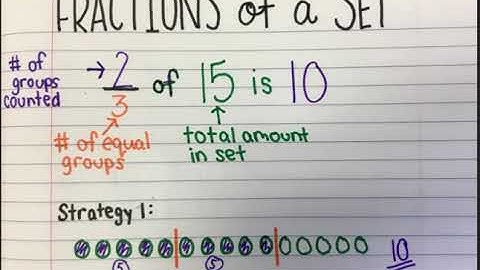 FRACTIONS of a SET
# of groups counted → 2/3 of 15 is 10
# of equal groups
total amount in set
Strategy 1:
10
5 5